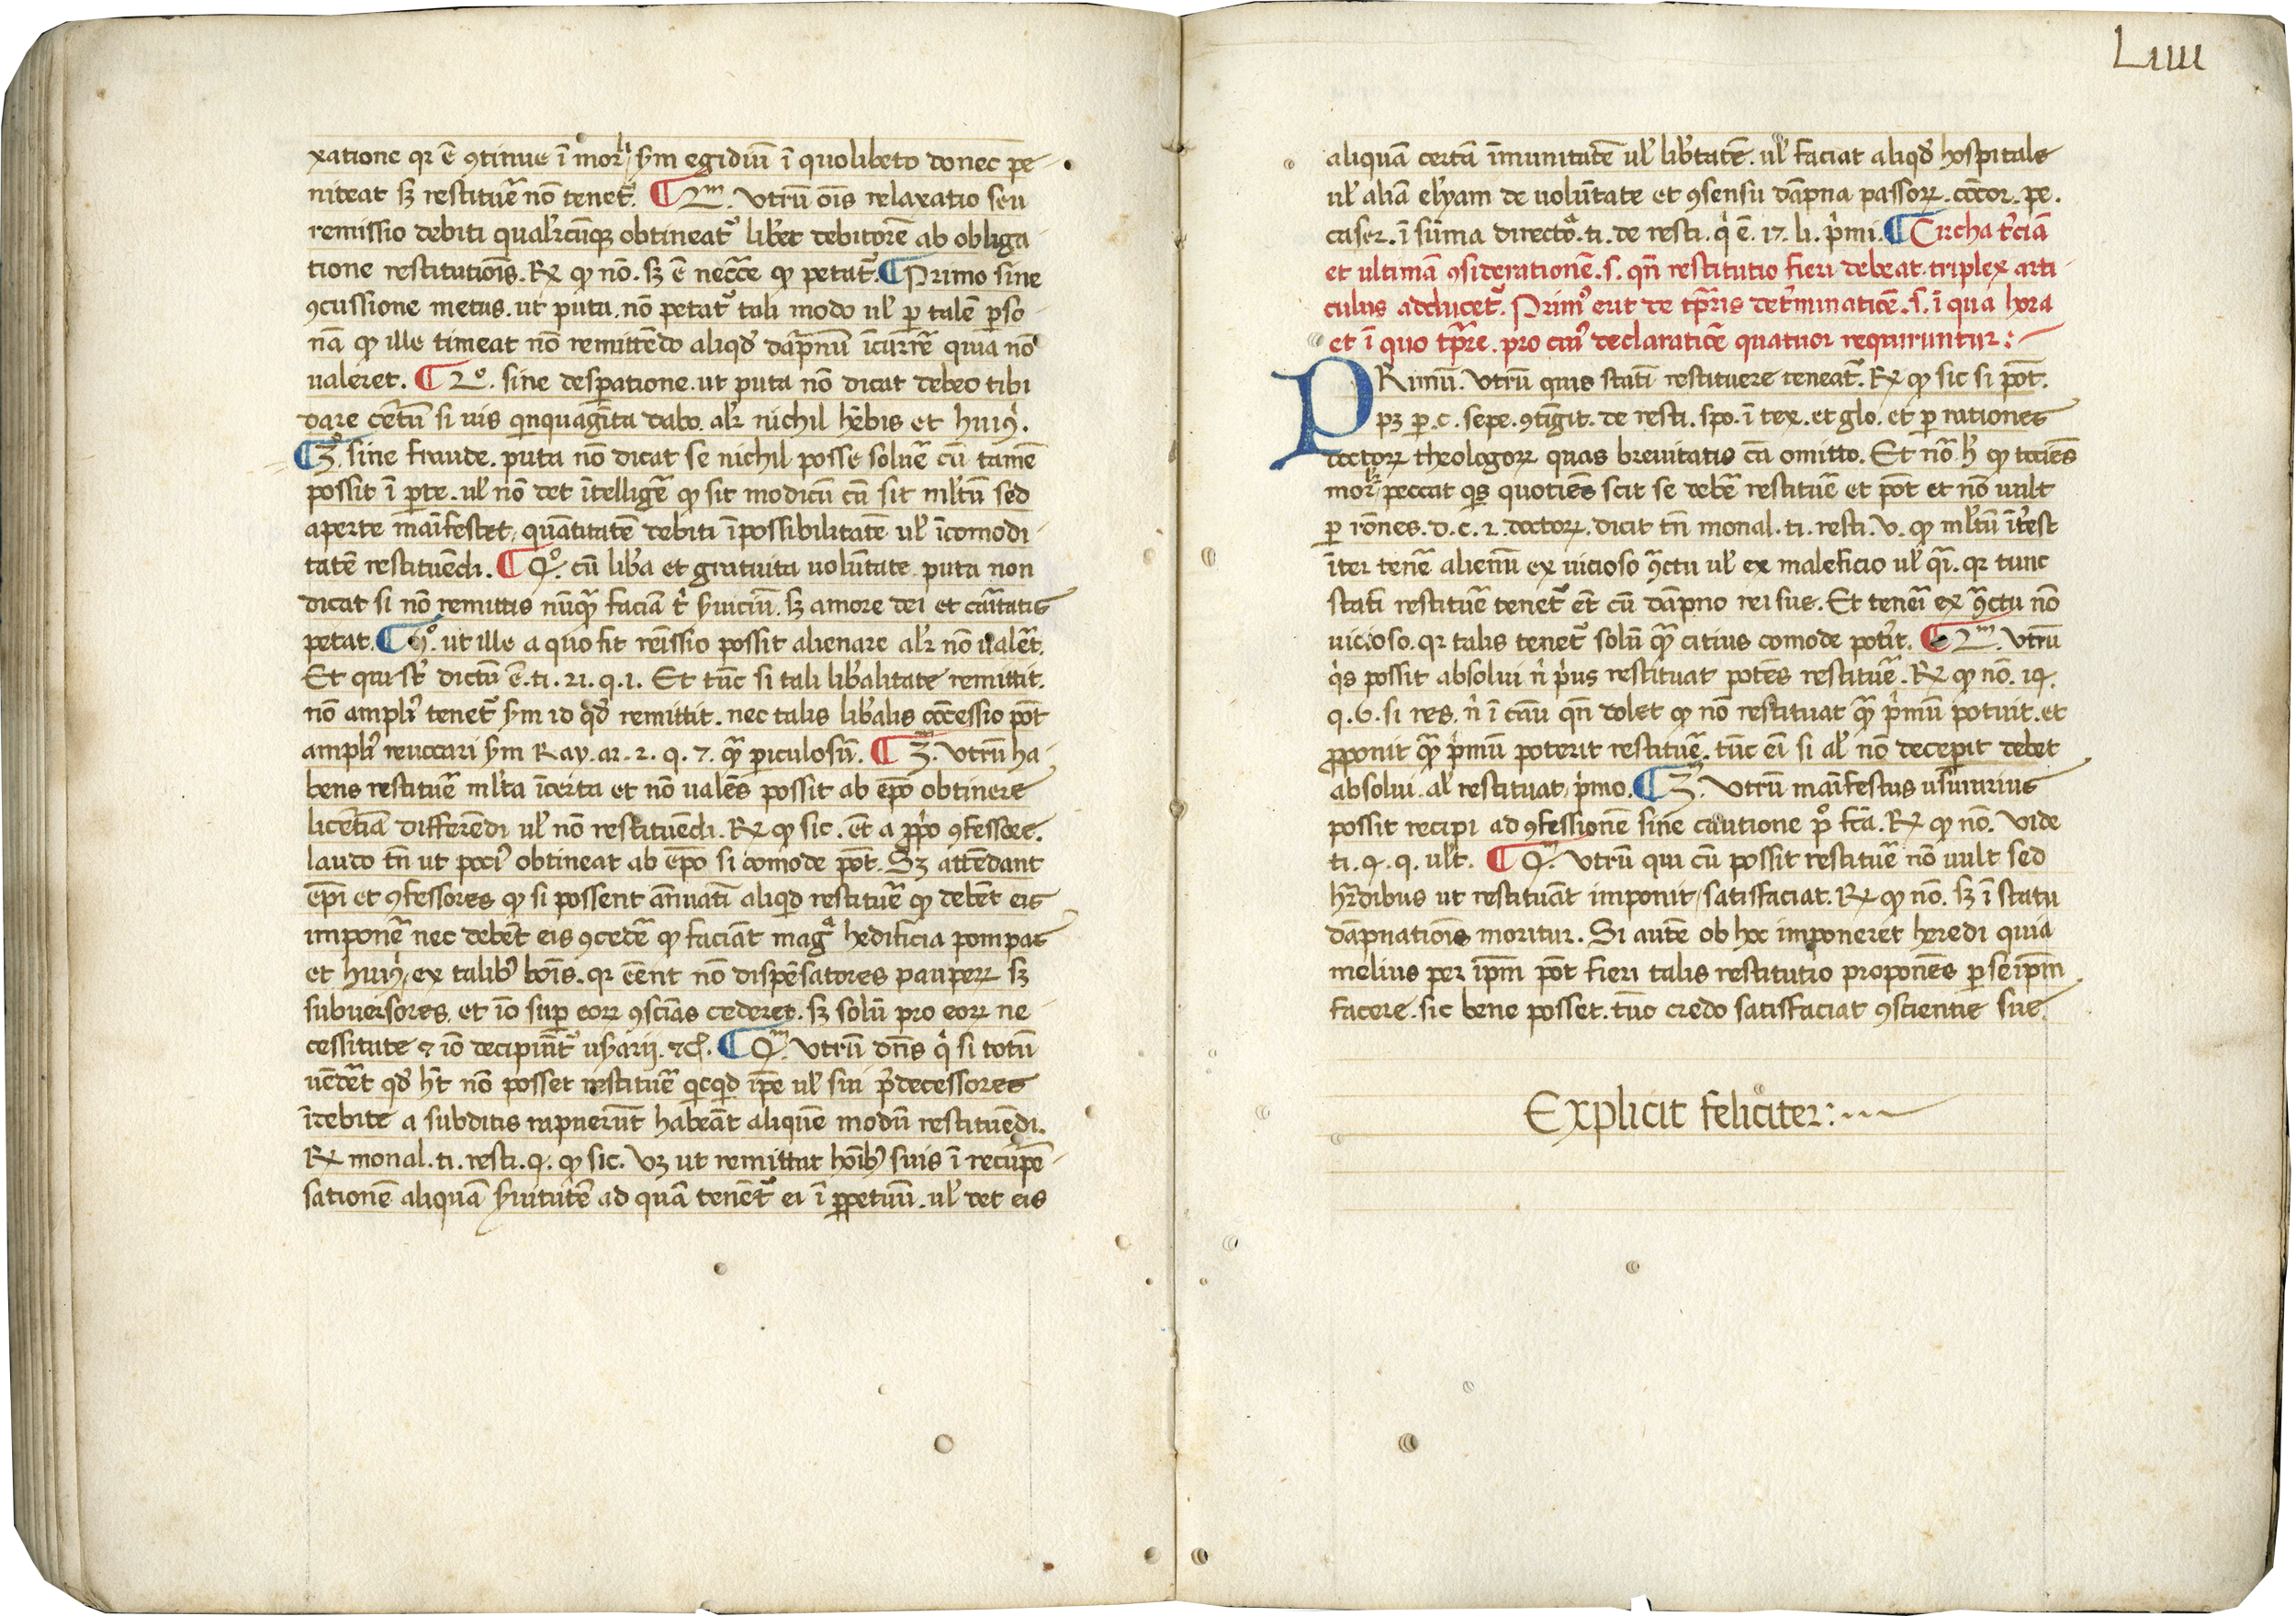 xatione qr ē ꝯtinue ī morli sꝫm egidiū ī quolibeto donec pe
niteat sꝫ restituē nō tenetr. ¶ 2m. Utrū ois relaxatio seu
remissio debiti qualrcūqꝫ obtineatr libet debitorē ab obliga
tione restitutiōis. Rx qꝫ nō. sꝫ ē neccē qꝫ petatr. ¶ Primo sine
ꝯcussione metus. ut puta. nō petatr tali modo ul' ꝑ talē ꝑso
nā qꝫ ille timeat nō remittēdo aliqd' dāpnū īcurrē quia nō
ualeret. ¶ 2o. sine despatione. ut puta nō dicat debeo tibi
dare cētū si uis qinquagīta dabo. alr nichil hēbis et huiꝰ.
¶ 3o. sine fraude. puta nō dicat se nichil posse soluē cū tamē
possit ī ꝑte. ul' nō det ītelligē qꝫ sit modicū cū sit ml'tū sed
aperte māifestet quātitatē debiti īpossibilitatē ul' īcomodi
tatē restituēdi. ¶ Qo. cū lib'a et gratuita uolūtate puta non
dicat si nō remittis nūqꝫ faciā t' s'uiciū. sꝫ amore dei et caritatis
petat. ¶ 5o. ut ille a quo fit reissio possit alienare alr nō ualet.
Et qui st' dictū ē. ti. 21. q. 1. Et tūc si tali lib'alitate remittit.
nō ampliꝰ tenetr sꝫm id qd' remittit. nec talis lib'alis cōcessio pōt
ampliꝰ reuocari sꝫm Ray. ar. 2. q. 7. qꝫ piculosū. ¶ 3m. Utrū ha
bens restituē ml'ta īcerta et nō ualēs possit ab epō obtinere
licētiā differēdi ul' nō restituēdi. Rx qꝫ sic. et a ꝓpo ꝯfessore.
laudo tn ut pociꝰ obtineat ab epō si comode pōt. Sꝫ attēdant
epi et ꝯfessores qꝫ si possent ānuati aliqid restituē qꝫ debēt eis
imponē nec debēt eis ꝯcedē qꝫ faciāt magª hedificia pompas
et huiꝰ, ex talibꝰ bois. qr eēnt nō dispēsatores pauperꝝ sꝫ
subuersores. et iō suꝑ eoꝝ ꝯsciās cederet. sꝫ solū pro eoꝝ ne
cessitate & iō decipiūtr usarij. &c. ¶ Qm. Utrū dns qi si totū
uēdēt qd' ht nō posset restituē qicqid ipe ul' sui p'decessores
īdebite a subditis rapuerūt habeāt aliquē modū restituēdi.
Rx monal. ti. resti. q. qꝫ sic. Uꝫ ut remittat hōibꝰ suis ī recūpē
sationē aliquā s'uitutē ad quā tenētr ei ī ꝑpetuū. ul' det eis
Liiii
aliquā certā īmunitatē ul' lib'tatē. ul' faciat aliqd' hospitale
ul' aliā elyam de uolūtate et ꝯsensu dāpna passoꝝ. cōcor. pe.
caser. ī sūma directoª. ti. de resti. qi ē. 17. li. p'mi. ¶ Circha t'ciā
et ultimā ꝯsiderationē. s. qn restitutio fieri debeat. triplex arti
culus adducetr. Primꝰ erit de tꝑris det'minatiōe. s. ī qua hora
et ī quo tꝑre. pro cuiꝰ declaratiōe quatuor requiruntur:
PRimū. Utrū quis stati restituere teneatr. Rx qꝫ sic si pōt.
pꝫ ꝑ. c. sepe. ꝯtigit. de resti. spo. ī tex. et glo. et ꝑ rationes
doctoꝝ theologoꝝ quas breuitatis cā omitto. Et nōª h' qꝫ tociēs
morlr peccat qis quotiēs scit se debē restituē et pōt et nō uult
ꝑ rōnes. d. c. 2. doctoꝝ. dicit tn monal. ti. resti. v. qꝫ ml'tū īt'est
īter tenē alienū ex uicioso ꝯªctu ul' ex maleficio ul' qªi. qr tunc
stati restituē tenetr et cū dāpno rei sue. Et tenēi ex ꝯªctu nō
uicioso. qr talis tenetr solū qªꝫ citius comode pot'it. ¶ 2m. Utrū
qis possit absolui ni p'us restituat potēs restituē. Rx qꝫ nō. 14.
q. 6. si res. ni ī cāu qn dolet qꝫ nō restituat qªꝫ p'mū potuit. et
ꝓponit qªꝫ p'mū poterit restituē. tūc ei si al' nō decepit debet
absolui. al' restituat p'mo. ¶ 3m. Utrū māifestus usurarius
possit recipi ad ꝯfessionē sine cautione po fcā. Rx qꝫ nō. Vide
ti. q. q. ult. ¶ Qm. Utrū qui cū possit restituē nō uult sed
hr̄dibus ut restituāt imponit, satisfaciat. Rx qꝫ nō. sꝫ ī statu
dāpnatiōis moritur. Si autē ob hoc imponeret heredi quia
melius per ipm pōt fieri talis restitutio proponēs ꝑ seipm
facere. sic bene posset. tūc credo satisfaciat ꝯscientie sue.
Explicit feliciter: